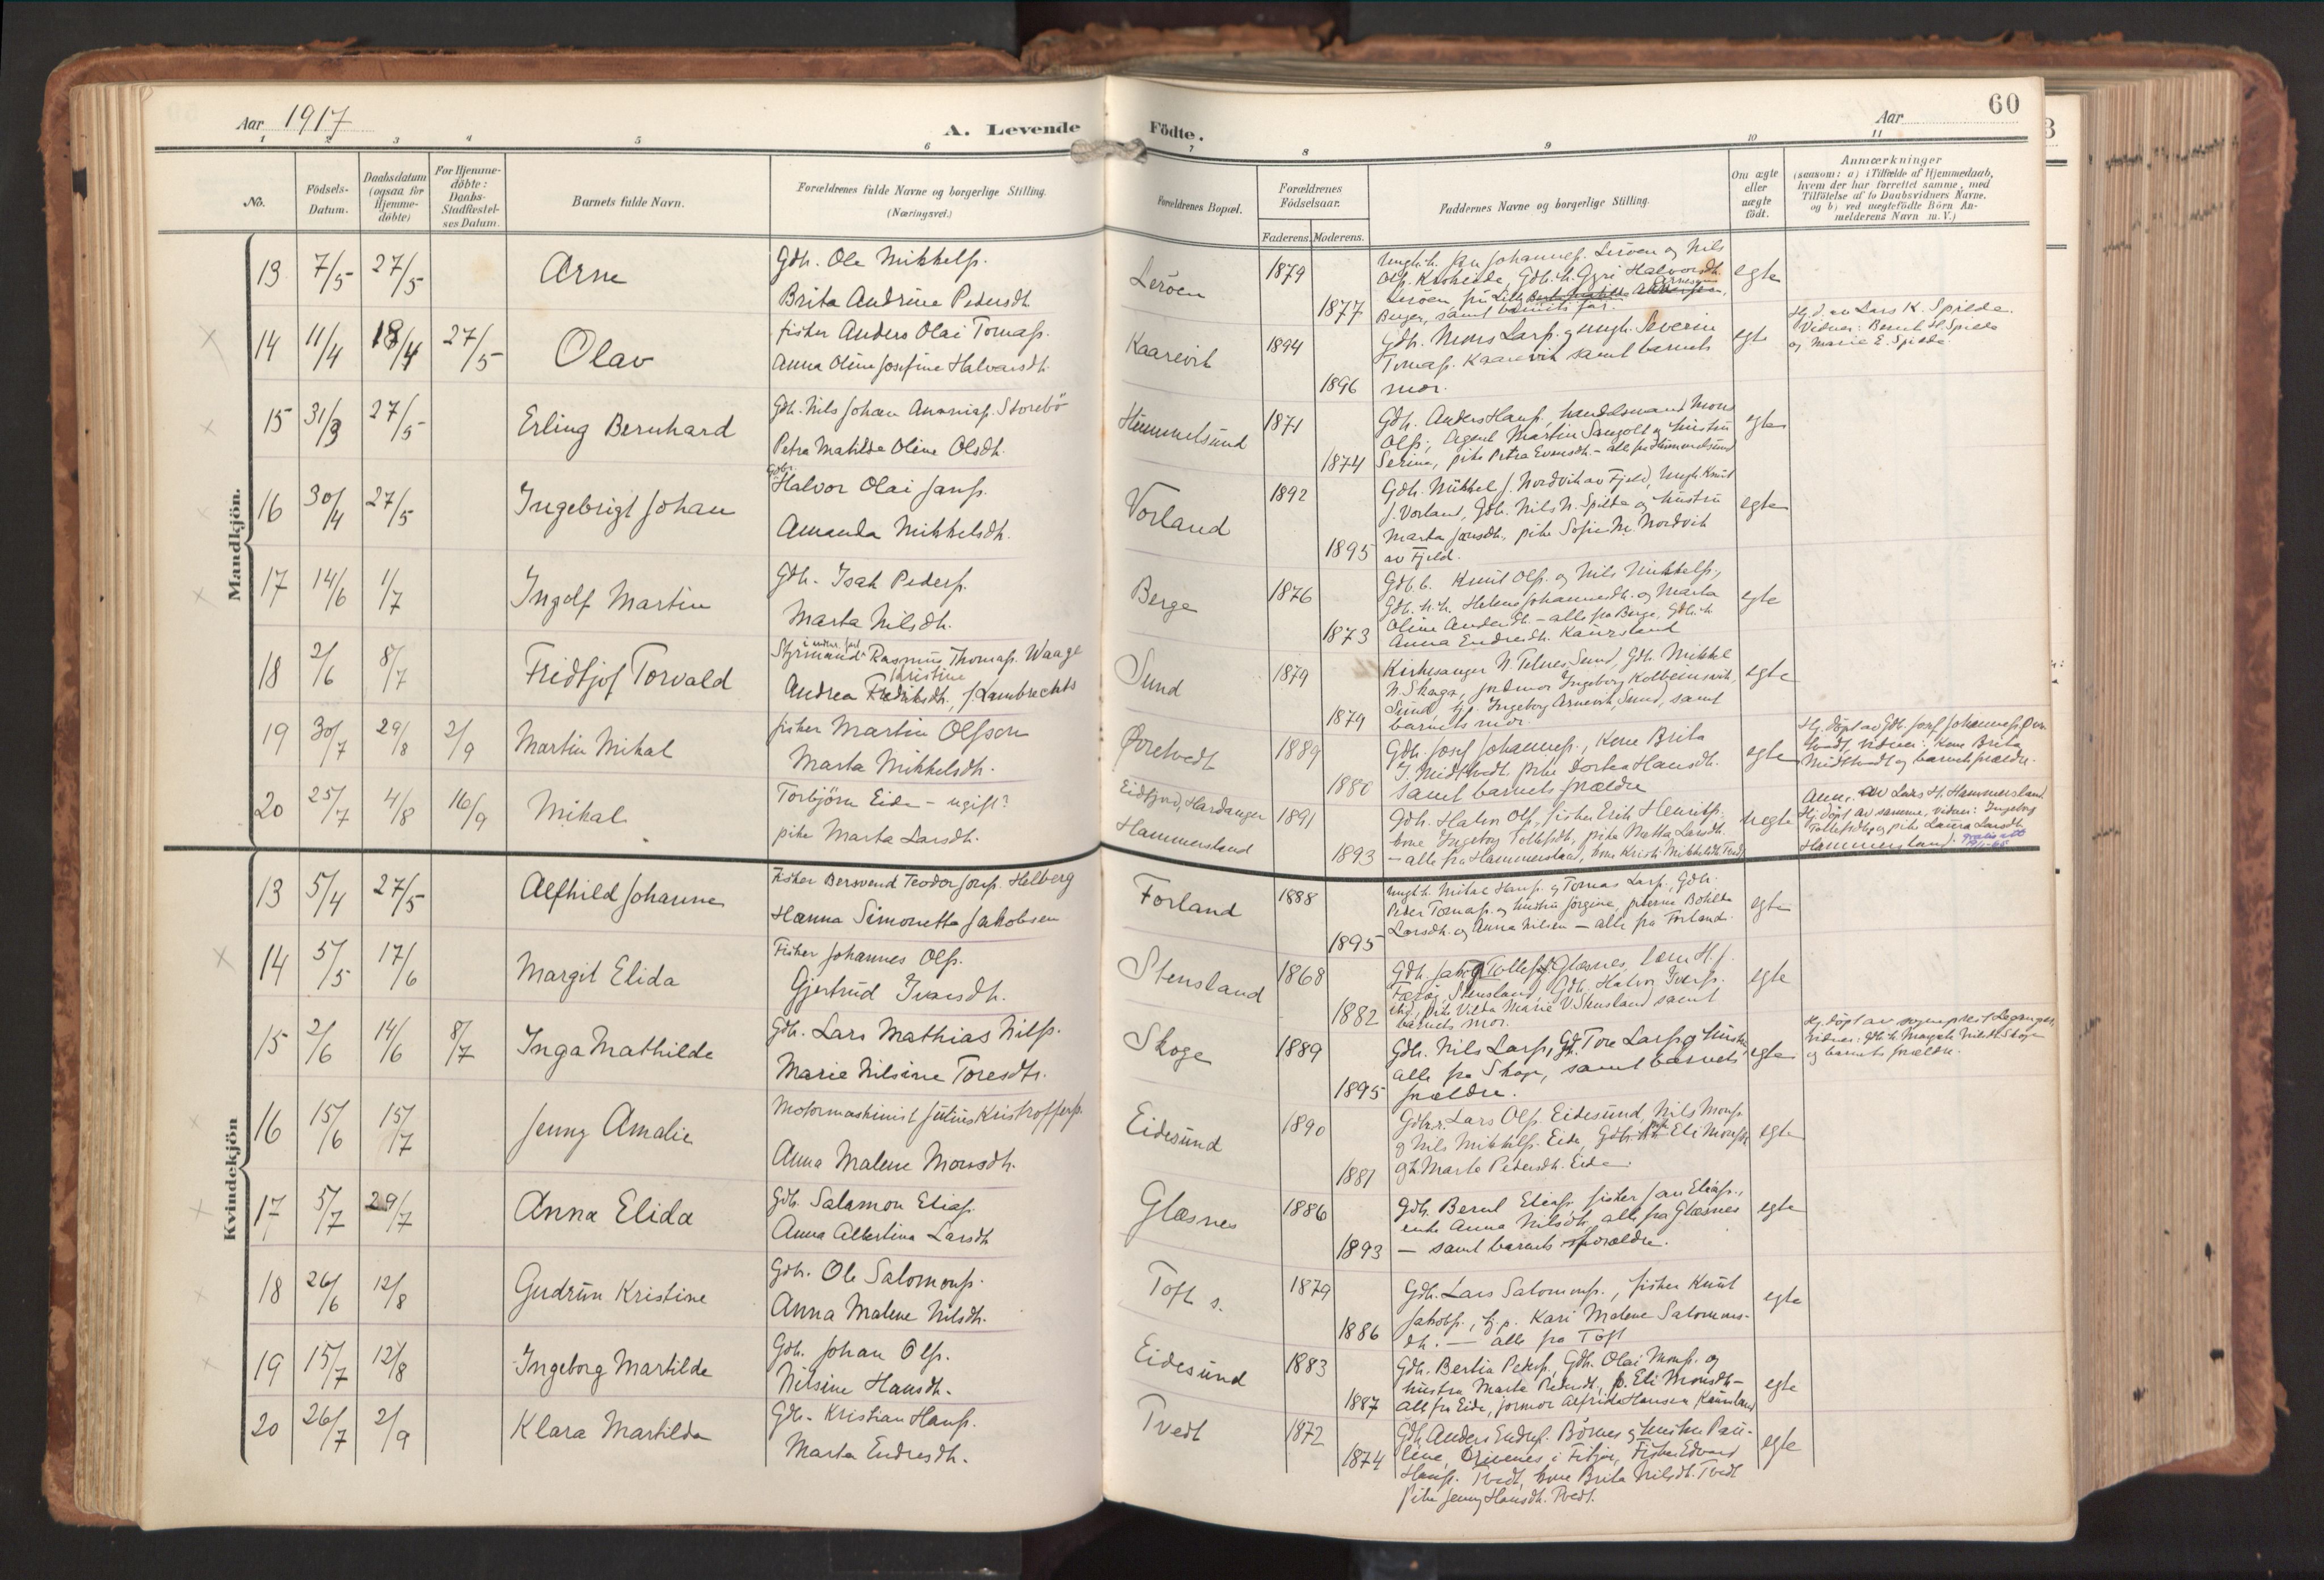 60
Aar 1917
A. Levende Födte.
Aar
1 2 3 4 5 6 7 8 9 10 11
No.
Födsels-Datum.
Daabsdatum (ogsaa for Hjemme-döbte)
For Hjemme-döbte: Daabs-Stadfæstel-ses Datum.
Barnets fulde Navn.
Forældrenes fulde Navne og borgerlige Stilling. (Næringsvei.)
Forældrenes Bopæl.
Forældrenes Födselsaar.
Faderens. Moderens.
Faddernes Navne og borgerlige Stilling.
Om ægte eller uægte födt.
Anmærkninger
(saasom: a) i Tilfælde af Hjemmedaab,
hvem der har forrettet samme, med
Tilföielse af to Daabsvidners Navne.
og b) ved uægtefödte Börn An-
melderens Navn m. V.)
Mandkjön.
13 7/5 27/5 Arne
Gdb. Ole Mikkelss.
Brita Andrine Pedersdt.
Leröen 1879 1877
egte
14 11/4 18/4 27/5 Olav
fisker Anders Olai Tomass.
Anna Oline Josefine Halvorsdt.
Kaarevik 1894 1896
Gdb. Mons Larss. og ungk. Severin
Tomass. Kaarevik samt barnets
mor.
egte
Hj. d. av Lars K. Spilde.
Vidner: Bernt H. Spilde
og Marie E. Spilde
15 31/3 27/5 Erling Bernhard
Gdb. Nils Johan Ananiass. Storebö
Petra Matilde Oline Olsdt.
Hummelsund 1871 1874
Gdb. Anders Hanss., handelsmand Mons
Olss., Agent Martin Sangolt og hustru
Serina, pike Petra Evensdt. - alle fra Hummelsund
egte
16 30/4 27/5 Ingebrigt Johan
Gdbr. Halvor Olai Janss.
Amanda Mikkelsdt.
Vorland 1892 1895
Gdb. Mikkel J. Nordvik av Fjeld, Ungk. Knut
J. Vorland, Gdb. Nils N. Spilde og hustru
Marta Jansdt., pike Sofie M. Nordvik
av Fjeld.
egte
17 14/6 1/7 Ingolf Martin
Gdb. Isak Pederss.
Marta Nilsdt.
Berge 1876 1873
Gdb.b. Knut Olss. og Nils Mikkelss.,
Gdb. h.h. Helene Johannesdt. og Marta
Oline Andersdt. - alle fra Berge, Gdb. h.
Anna Endresdt. Kaursland
egte
18 2/6 8/7 Fridtjof Torvald
Styrmand Rasmus Thomass. Waage
Andrea Kristine Fredriksdt., f. Lambrechts
Sund 1879 1879
Kirkesanger N. Telnes, Sund, Gdb. Mikkel
N. Skaga, jordmor Ingeborg Kolbeinsvik,
Sund, Ingeborg Arnevik, Sund, samt
barnets mor.
egte
19 30/7 29/8 2/9 Martin Mikal
fisker Martin Olsson
Marta Mikkelsdt.
Øvretvedt 1889 1880
Gdb. Josef Johanness., Kone Brita
J. Midttvedt. pike Dortea Hansdt.
samt barnets forældre
egte
Hj. döpt av Gdb. Josef Johanness. Øvre
tvedt, vidner: Kone Brita
Midttvedt og barnets forældre.
20 25/7 4/8 16/9 Mikal
Torbjörn Eide - ugift?
pike Marta Larsdt.
Eidfjord, Hardanger
Hammersland 1891 1893
Gdb. Halvor Olss., fisker Erik Henrikss.
kone Ingeborg Tollefsdt., pike Marta Larsdt.
- alle fra Hammersland, kone Kristi Mikkelsdt. Tvedt
uegte
Anm. av Lars H. Hammersland
Hj. döpt av samme, vidner: Ingeborg
Tollefsdt. og pike Laura Larsdt.
Hammersland.
Kvindekjön
13 5/4 27/5 Alfhild Johanne
Fisker Bersvend Teodor Jonss. Helberg
Hanna Simonette Jakobsen
Forland 1888 1895
ungk. Mikal Hanss. og Tomas Larss., Gdb.
Peder Tomass. og hustru Jörgine, pikerne Bohilda
Larsdt. og Anna Nilsen - alle fra Forland.
egte
14 5/5 17/6 Margit Elida
Fisker Johannes Olss.
Gjertrud Ivarsdt.
Stensland 1868 1882
Gdb. Halvor Iverss.
ibd., pike Vilda Marie V. Stensland samt
barnets mor.
egte
15 2/6 14/6 8/7 Inga Mathilde
Gdb. Lars Mathias Nilss.
Marie Nilsine Toresdt.
Skoge 1889 1895
Gdb. Nils Larss., Gdb. Tore Larss. og hustru
alle fra Skoge, samt barnets
forældre.
egte
Hj. döpt av sogneprest Leganger,
vidner: Gdb. h. Magale Nilsdt. Skoge
og barnets forældre.
16 15/6 15/7 Jenny Amalie
Motormaskinist Julius Kristofferss.
Anna Malene Monsdt.
Eidesund 1890 1881
Gdbr. Lars Olss. Eidesund, Nils Monss.
og Nils Mikkelss. Eide, Eli Monsdt.
og h. Marte Pedersdt. Eide.
egte
17 5/7 29/7 Anna Elida
Gdb. Salamon Eliass.
Anna Albertina Larsdt
Glæsnes 1886 1893
Gdb. Bernt Eliass., fisker Jan Eliass.,
enke Anna Nilsdt., alle fra Glæsnes
- samt barnets forældre.
egte
18 26/6 12/8 Gudrun Kristine
Gdb. Ole Salomonss.
Anna Malene Nilsdt.
Toft s. 1879 1886
Gdb. Lars Salomonss., fisker Knut
Jakobss., tj.p. Kari Malene Salomons-
dt. - alle fra Toft
egte
19 15/7 12/8 Ingeborg Martilde
Gdb. Johan Olss.
Nilsine Hansdt.
Eidesund 1883 1887
Gdb. Bertin Pederss., Gdb. Olai Monss. og
hustru Marta Pedersdt., p. Eli Monsdt -
alle fra Eide, jormor Alfrida Hansen, Kausland
egte
20 26/7 2/9 Klara Martilda
Gdb. Kristian Hanss.
Marta Endresdt.
Tvedt 1872 1874
Gdb. Anders Endress. Börnes og hustru Pau-
line, Drivenes i Fitjar, Fisker Edvard
Hanss. Tvedt, kone Brita Nilsdt. Tvedt
pike Jenny Hansdt. Tvedt.
egte